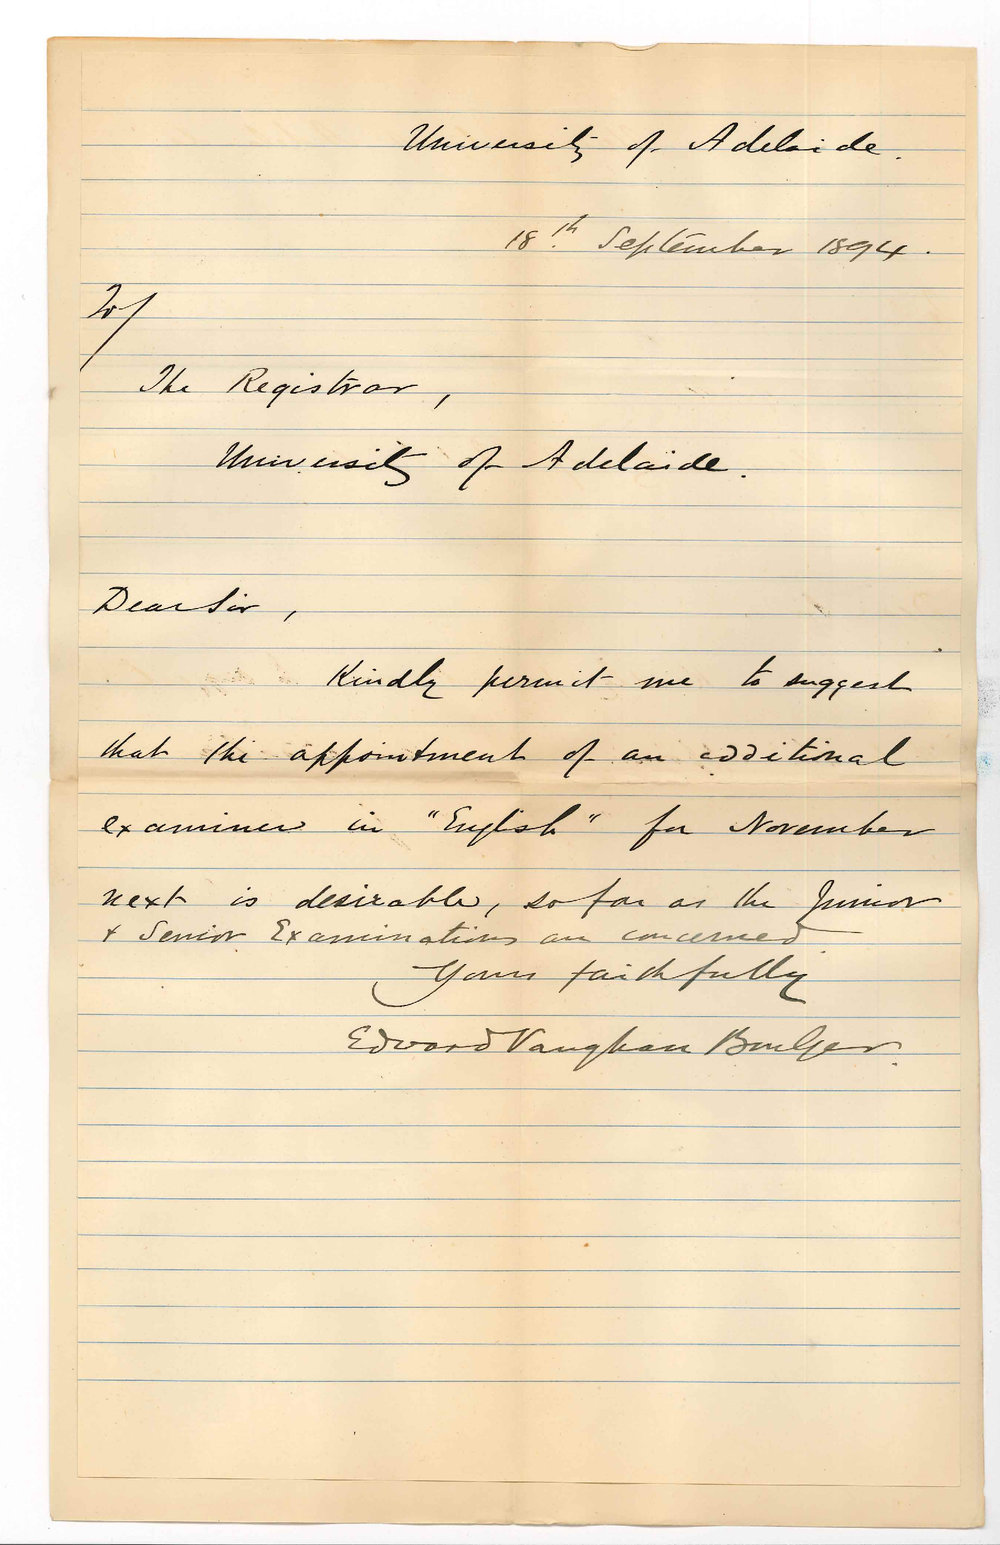 University of Adelaide.
18th September 1894.
To/
The Registrar,
University of Adelaide.
Dear Sir,
Kindly permit me to suggest
that the appointment of an additional
examiner in "English" for November
next is desirable, so far as the Junior
& Senior Examinations are concerned
Yours faithfully
Edward Vaughan Boulger.